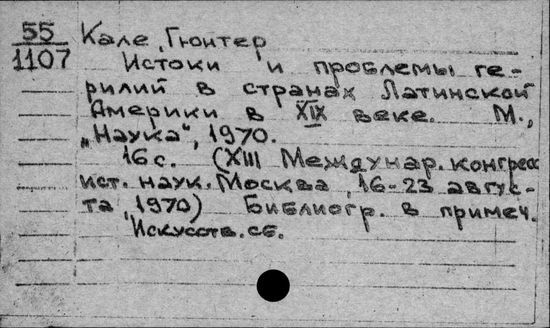 55
1107
Кале, Гюнтер
Истоки и проблемы ге-
рилий в странах Латинской
Америки в XIX веке. М.,
„Наука“, 1970.
16 с. (XIII Междунар. конгресс
ист. наук. Москва, 16-23 авгус-
та, 1970) Библиогр. в примеч.
Искусств. сб.